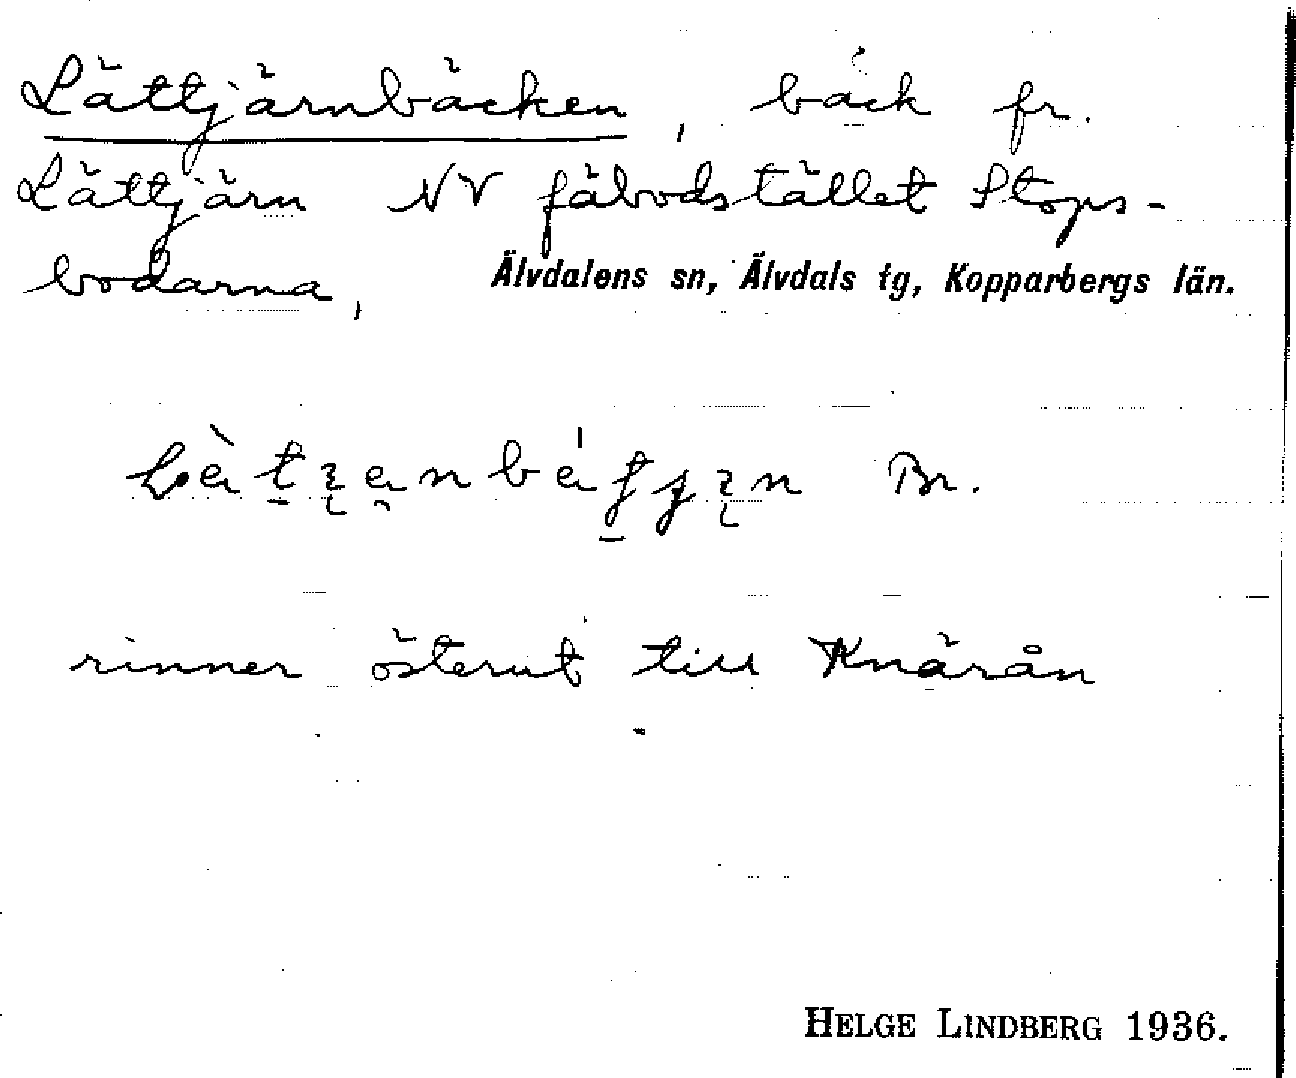 Lättjärnbäcken, bäck fr.
Lättjärn NV fäbodstället Stops-
bodarna, Älvdalens sn, Älvdals tg, Kopparbergs län.
Br.
rinner österut till Knärån
HELGE LINDBERG 1936.